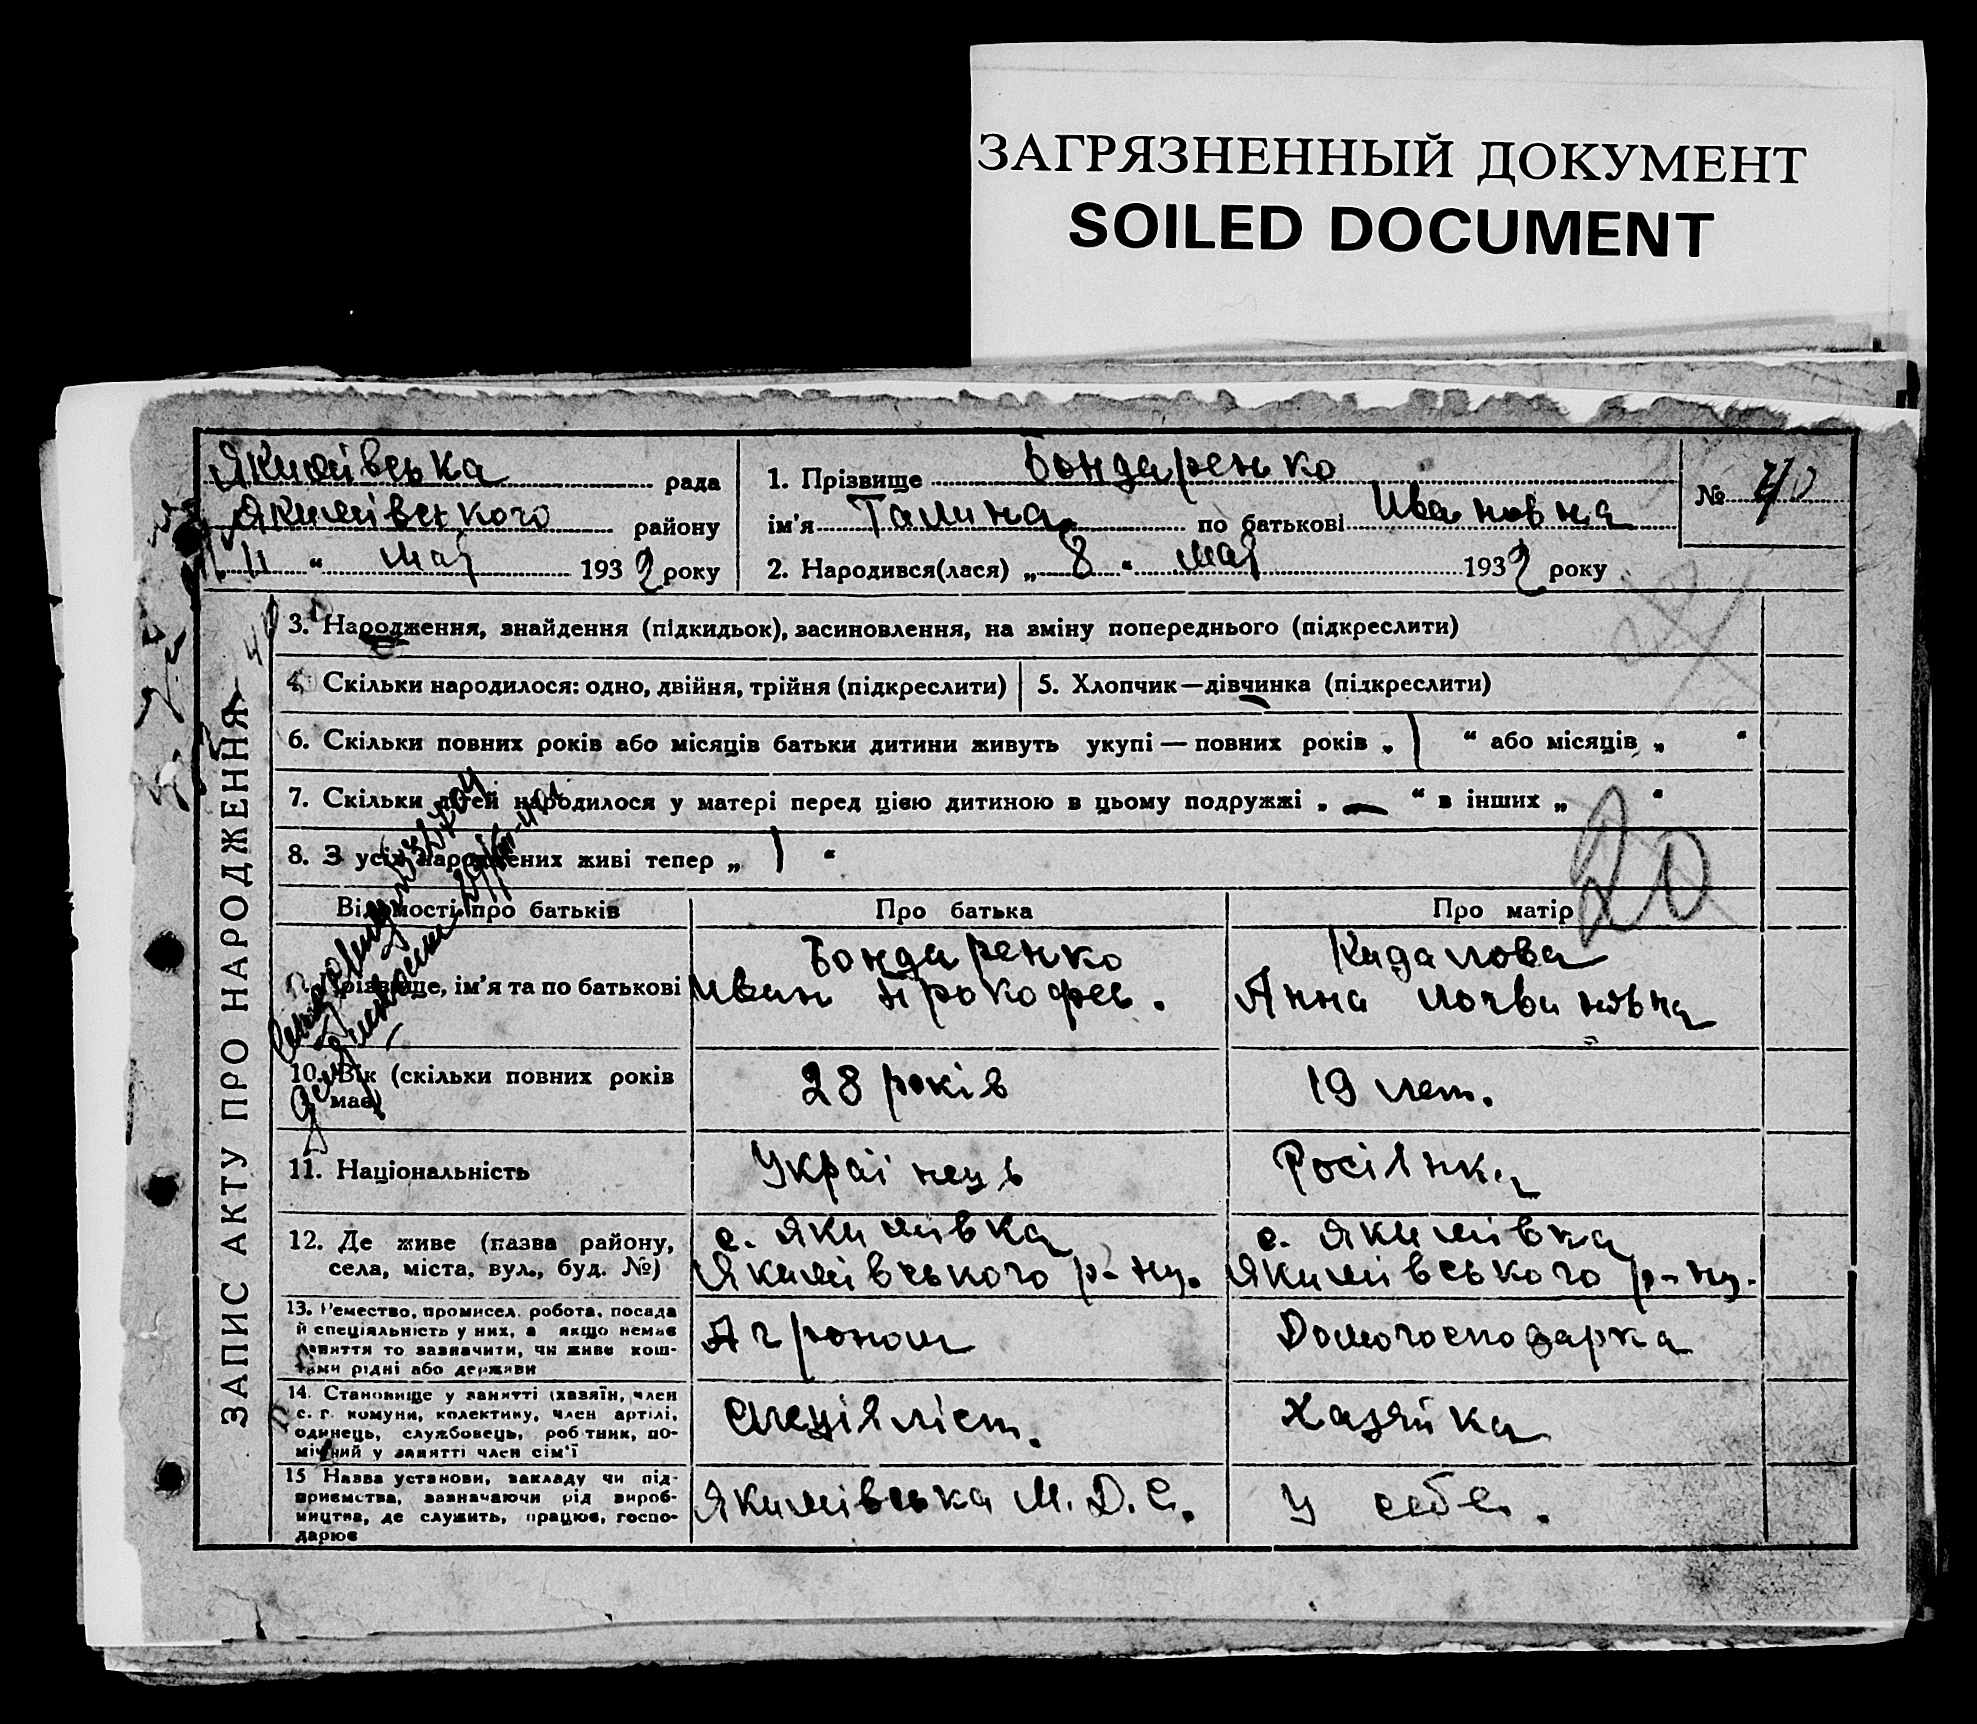 ЗАГРЯЗНЕННЫЙ ДОКУМЕНТ
SOILED DOCUMENT
Якимівська рада
Якимівського району
11 “ мая 1932 року
1. Прізвище Бондаренко
ім'я Галина по батькові Ивановна
2. Народився(лася) „ 8 “ мая 1932 року
№ 40
ЗАПИС АКТУ ПРО НАРОДЖЕННЯ
3. Народження, знайдення (підкидьок), засиновлення, на зміну попереднього (підкреслити)
4. Скільки народилося: одно, двійня, трійня (підкреслити)
5. Хлопчик—дівчинка (підкреслити)
6. Скільки повних років або місяців батьки дитини живуть укупі — повних років „ 1 “ або місяців „ “
7. Скільки дітей народилося у матері перед цією дитиною в цьому подружжі „ — “ в інших „ “
8. З усіх народжених живі тепер „ 1 “
20
Відомості про батьків
Про батька
Про матір
Прізвище, ім'я та по батькові
Бондаренко
Иван Прокофев.
Кидалова
Анна Логвиновна
10. Вік (скільки повних років
має)
28 років
19 лет.
11. Національність
Украінець
Росіянка
12. Де живе (назва району,
села, міста, вул., буд. №)
с. Якимівка
Якимівського р-ну.
с. Якимівка
Якимівського р-ну.
13. Ремество, промисел, робота, посада
й спеціяльність у них, а якщо немає
заняття то зазначити, чи живе кош-
тами рідні або держави
Агроном
Домогосподарка
14. Становище у занятті (хазяїн, член
с. г. комуни, колективу, член артілі,
одинець, службовець, робітник, по-
мічний у занятті член сім'ї
Спеціяліст.
Хазяйка
15 Назва установи, закладу чи під-
приємства, зазначаючи рід вироб-
ництва, де служить, працює, госпо-
дарює
Якимівська М.Д.С.
У себе.